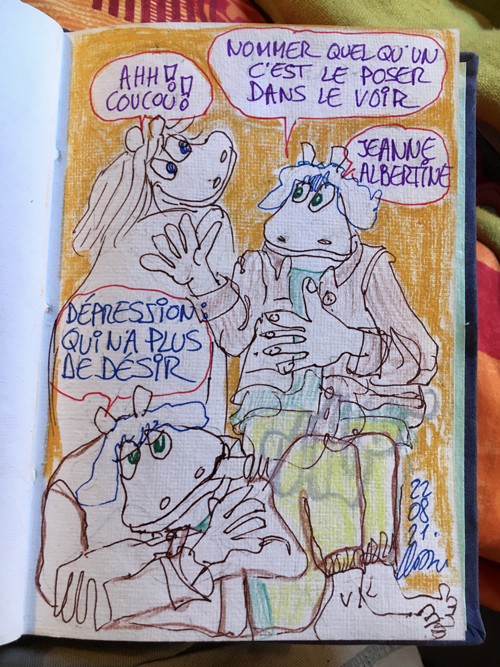 AHH!
COUCOU!
NOMMER QUELQU'UN
C'EST LE POSER
DANS LE VOIR
JEANNE
ALBERTINE
DÉPRESSION:
QUI N'A PLUS
DE DÉSIR
22
08
21.